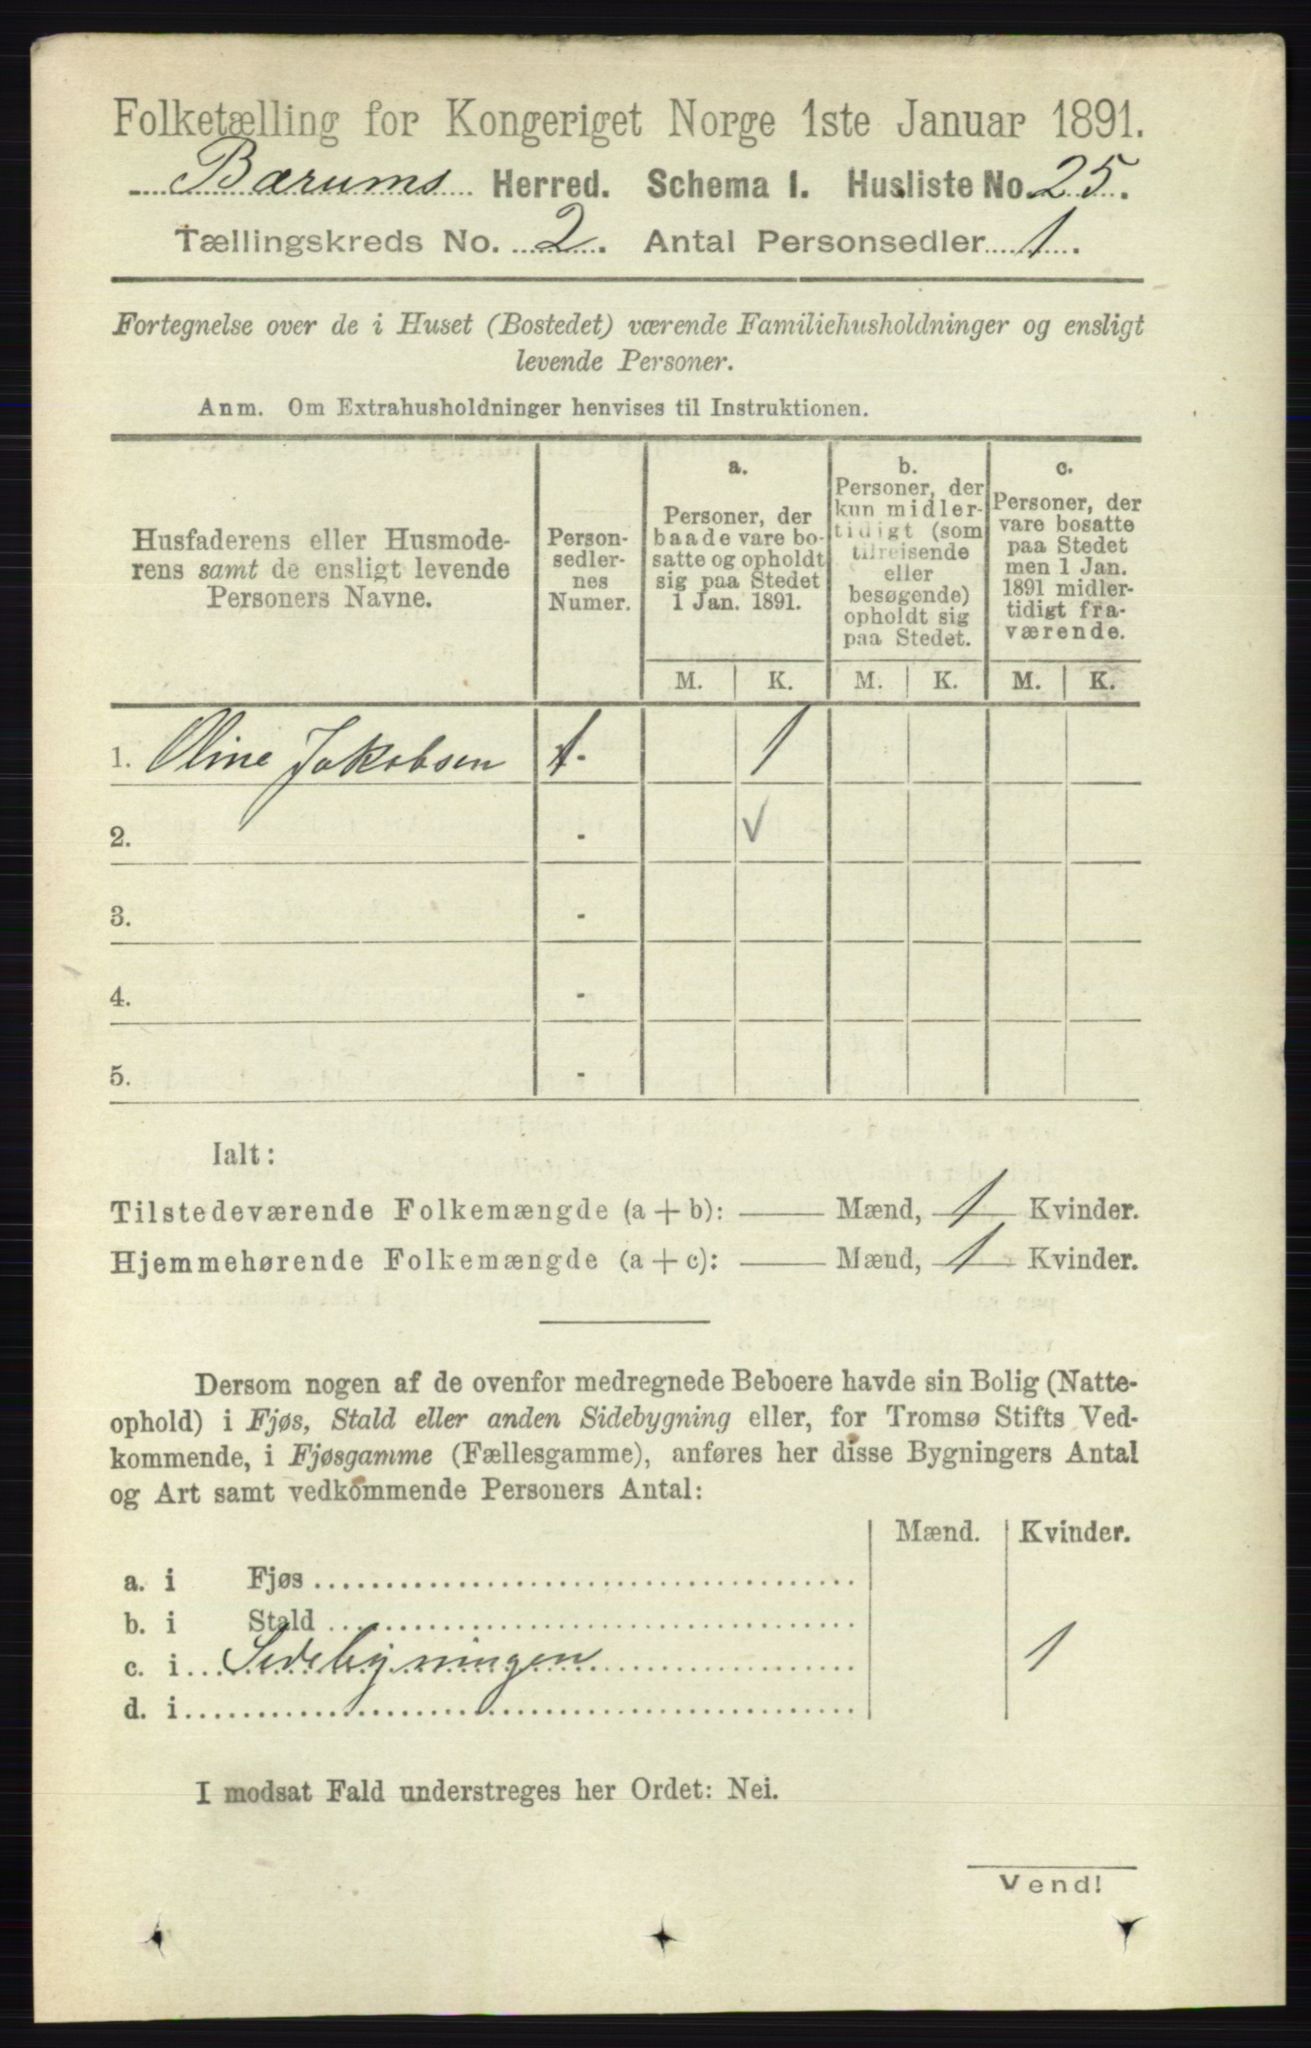 Folketælling for Kongeriget Norge 1ste Januar 1891.
Bærums Herred. Schema 1. Husliste No. 25.
Tællingskreds No. 2. Antal Personsedler 1.
Fortegnelse over de i Huset (Bostedet) værende Familiehusholdninger og ensligt
levende Personer.
Anm. Om Extrahusholdninger henvises til Instruktionen.
Husfaderens eller Husmode-
rens samt de ensligt levende
Personers Navne.
Person-
sedler-
nes
Numer.
a.
Personer, der
baade vare bo-
satte og opholdt
sig paa Stedet
1 Jan. 1891.
b.
Personer, der
kun midler-
tidigt (som
tilreisende
eller
besøgende)
opholdt sig
paa Stedet.
c.
Personer, der
vare bosatte
paa Stedet
men 1 Jan.
1891 midler-
tidigt fra-
værende.
M. K. M. K. M. K.
1. Oline Jakobsen 1- 1
2. - ✓
3. -
4. -
5. -
Ialt:
Tilstedeværende Folkemængde (a + b): —— Mænd, 1 Kvinder.
Hjemmehørende Folkemængde (a + c): —— Mænd, 1 Kvinder.
Dersom nogen af de ovenfor medregnede Beboere havde sin Bolig (Natte-
ophold) i Fjøs, Stald eller anden Sidebygning eller, for Tromsø Stifts Ved-
kommende, i Fjøsgamme (Fællesgamme), anføres her disse Bygningers Antal
og Art samt vedkommende Personers Antal:
Mænd. Kvinder.
a. i Fjøs
b. i Stald
c. i Sidebygningen 1
d. i
I modsat Fald understreges her Ordet: Nei.
Vend!